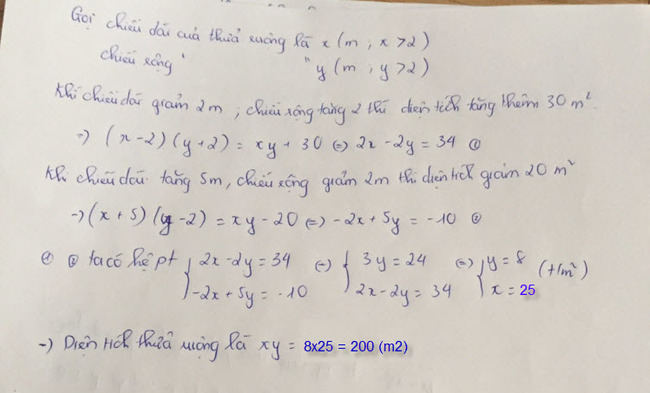 Gọi chiều dài của thửa ruộng là x (m ; x > 2)
chiều rộng " " y (m ; y > 2)
Khi chiều dài giảm 2m, chiều rộng tăng 2 thì diện tích tăng thêm 30 m²
=> (x - 2)(y + 2) = xy + 30 (=) 2x - 2y = 34 ①
Khi chiều dài tăng 5m, chiều rộng giảm 2m thì diện tích giảm 20 m²
-> (x + 5)(y - 2) = xy - 20 (=) -2x + 5y = -10 ②
① ② ta có hệ pt { 2x - 2y = 34 (=) { 3y = 24 (=) { y = 8 (t/m)
-2x + 5y = -10 2x - 2y = 34 x = 25
-) Diện tích thửa ruộng là xy = 8x25 = 200 (m2)